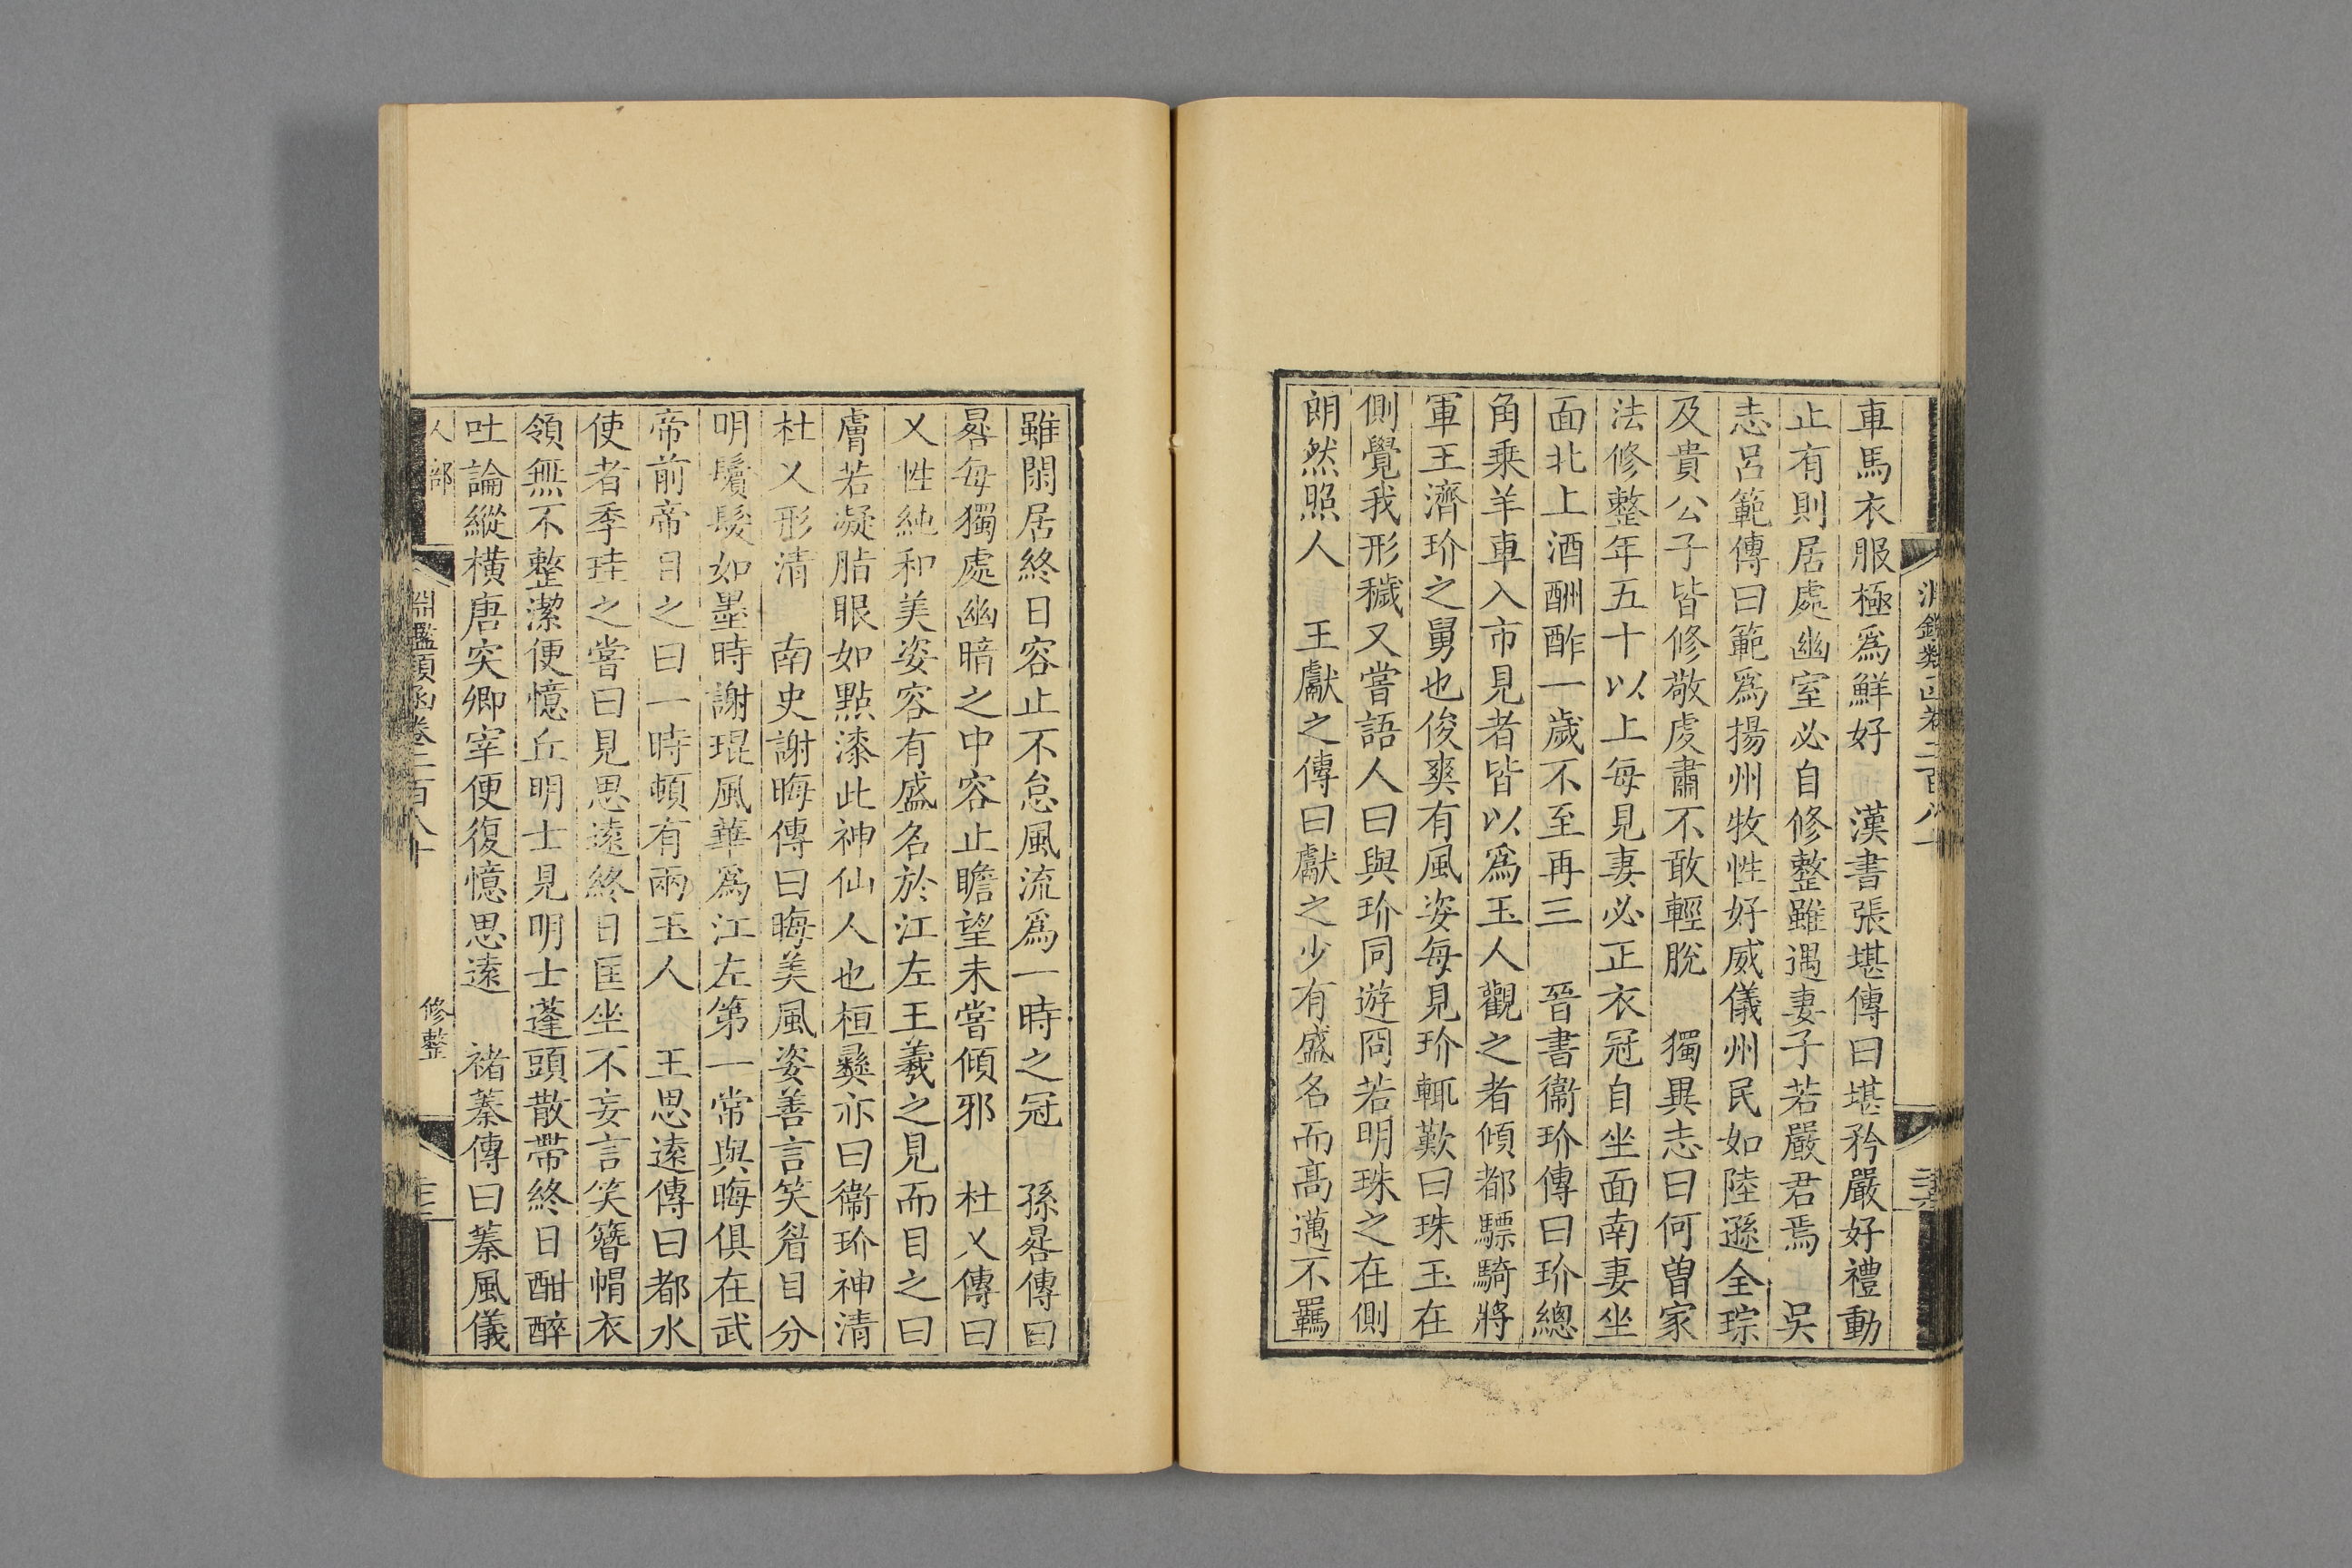 車馬衣服極爲鮮好　漢書張堪傳曰堪矜嚴好禮動
止有則居處幽室必自修整雖遇妻子若嚴君焉　吳
志呂範傳曰範爲揚州牧性好威儀州民如陸遜全琮
及貴公子皆修敬虔肅不敢輕脫　獨異志曰何曾家
法修整年五十以上每見妻必正衣冠自坐面南妻坐
面北上酒酬酢一歲不至再三　晉書衞玠傳曰玠總
角乗羊車入市見者皆以爲玉人觀之者傾都驃騎將
軍王濟玠之舅也俊爽有風姿每見玠輒歎曰珠玉在
側覺我形穢又嘗語人曰與玠同遊冏若明珠之在側
朗然照人　王獻之傳曰獻之少有盛名而高邁不羈
雖閑居終日容止不怠風流爲一時之冠　孫晷傳曰
晷每獨處幽暗之中容止瞻望未嘗傾邪　杜乂傳曰
乂性純和美姿容有盛名於江左王羲之見而目之曰
膚若凝脂眼如點漆此神仙人也桓彞亦曰衞玠神清
杜乂形清　南史謝晦傳曰晦美風姿善言笑眉目分
明鬢髮如墨時謝琨風華爲江左第一常與晦俱在武
帝前帝目之曰一時頓有兩玉人　王思遠傳曰都水
使者季珪之嘗曰見思遠終日匡坐不妄言笑簪帽衣
領無不整潔便憶丘明士見明士蓬頭散帶終日酣醉
吐論縱橫唐突卿宰便復憶思遠　褚蓁傳曰蓁風儀
人部
淵鑑類函卷二百八十
修整